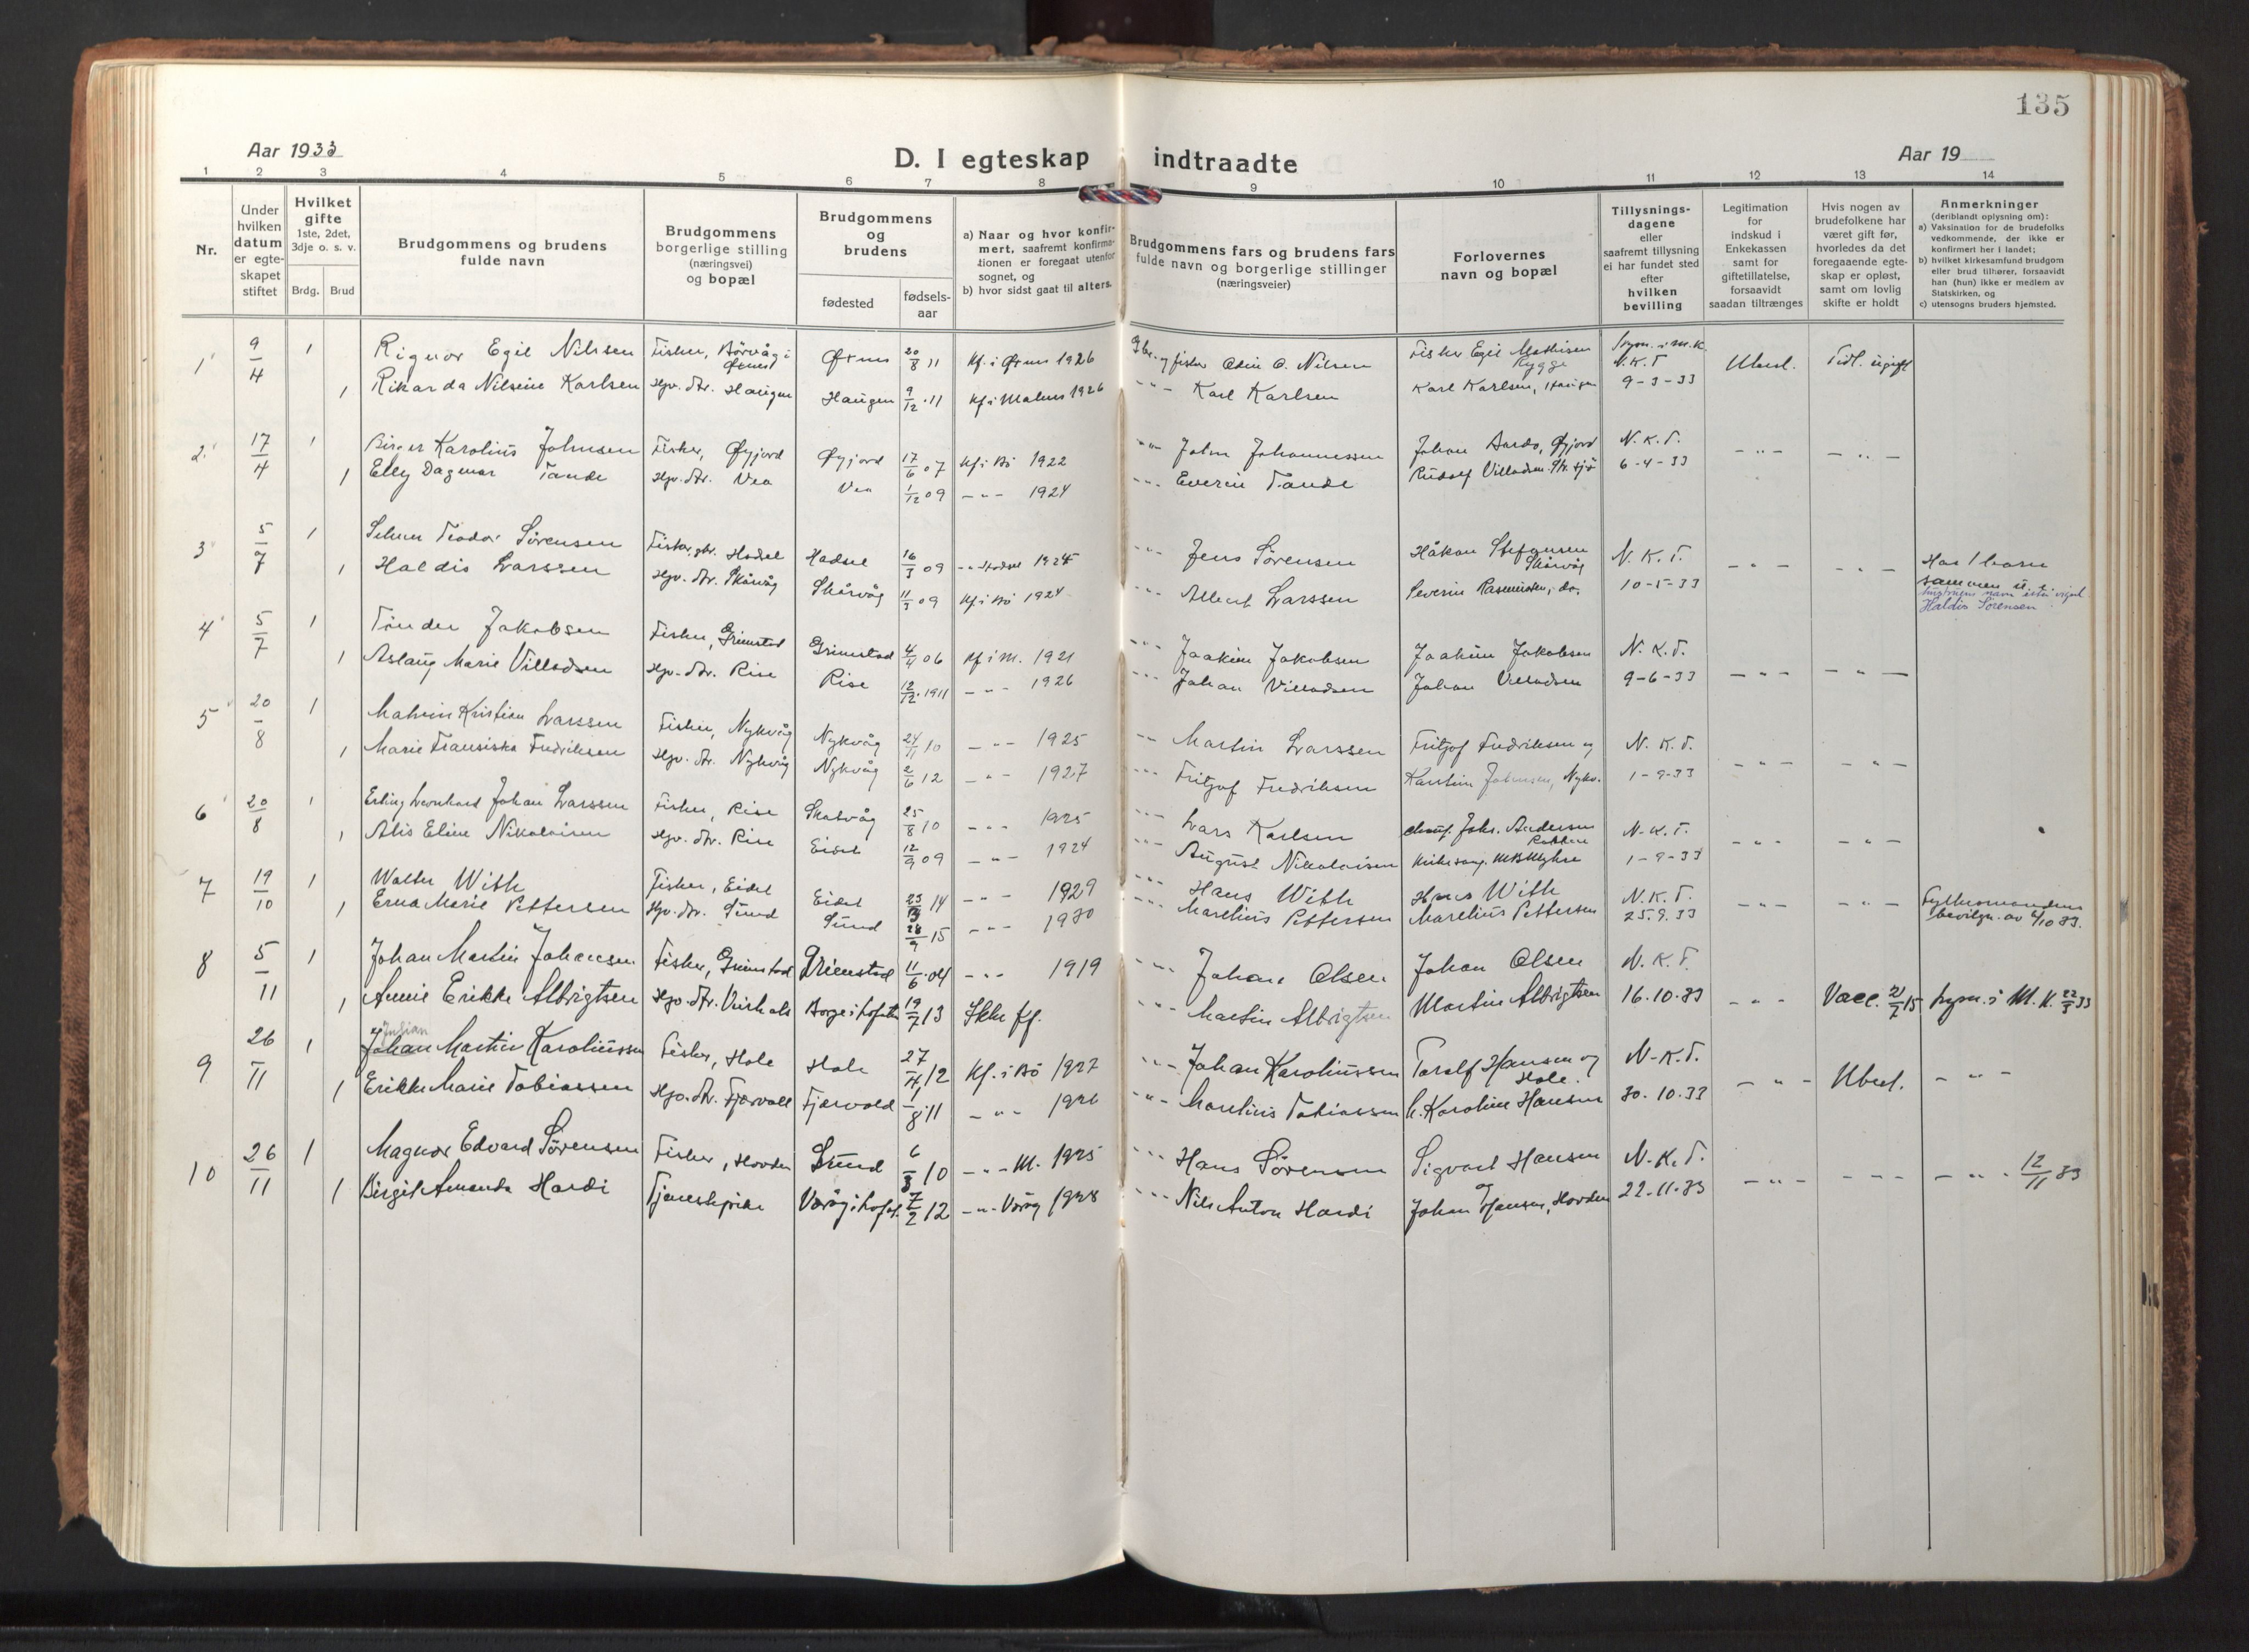 135
Aar 1933
D. I egteskap indtraadte
Aar 19
1 2 3 4 5 6 7 8 9 10 11 12 13 14
Nr.
Under hvilken datum er egte-skapet stiftet
Hvilket gifte
1ste, 2det, 3dje o. s. v.
Brdg. Brud
Brudgommens og brudens fulde navn
Brudgommens borgerlige stilling (næringsvei) og bopæl
Brudgommens og brudens
fødested
fødsels-aar
a) Naar og hvor konfir-mert, saafremt konfirma-tionen er foregaat utenfor sognet, og
b) hvor sidst gaat til alters.
Brudgommens fars og brudens fars fulde navn og borgerlige stillinger (næringsveier)
Forlovernes navn og bopæl
Tillysnings-dagene eller saafremt tillysning ei har fundet sted efter hvilken bevilling
Legitimation for indskud i Enkekassen samt for giftetillatelse, forsaavidt saadan tiltrænges
Hvis nogen av brudefolkene har været gift før, hvorledes da det foregaaende egte-skap er opløst, samt om lovlig skifte er holdt
Anmerkninger
(deriblandt oplysning om):
a) Vaksination for de brudefolks vedkommende, der ikke er konfirmert her i landet;
b) hvilket kirkesamfund brudgom eller brud tilhører, forsaavidt han (hun) ikke er medlem av Statskirken, og
c) utensogns bruders hjemsted.
1 9/4 1 Rignor Egil Nilssen Fisher, Börvåg i Øxnes Øxnes 20/8 11 Kf. i Øxnes 1926 Gbr. og fisker Odin O. Nilsen Fisker Egil Mathisen Rygge N.K.T. Ubesl. Tidl. ugift
1 Rikarda Nilsine Karlsen Hjv. dtr. Haugen Haugen 9/12 11 Kf i Malnes 1926 -"- Karl Karlsen Karl Karlsen, Haugen 9-3-33
2 17/4 1 Birger Karolius Johnsen Fisher, Øyjord Øyjord 17/6 07 Kf i Bö 1922 -"- John Johannessen Johan Øyjord N.K.T. -"- -"-
1 Elly Dagmar Tande Hjv. dtr. Vea Vea 1/12 09 -"- 1924 -"- Everin Tande Rudolf Villadsen 6-4-33
3 5/7 1 Teodor Sörensen Fisker, gbr. Hadsel Hadsel 16/3 09 -"- Hadsel 1924 -"- Jens Sørensen Håkon Stefansen Skårvåg N.K.T. -"- -"- Har 1 barn
1 Haldis Larssen Hjv. dtr. Skårvåg Skårvåg 11/3 09 Kf i Bö 1924 -"- Albert Larssen Severin Rasmussen, do. 10-5-33 sammen
Haldis Sörensen
4 5/7 1 Jakobsen Fisher, Grimstad Grimstad 4/4 06 Kf i M. 1921 -"- Joakim Jakobsen Joakim Jakobsen N.K.T.
1 Aslaug Marie Villadsen Hjv. dtr. Rise Rise 12/12 1911 -"- 1926 -"- Johan Villadsen Johan Villadsen 9-6-33 -"- -"-
5 20/8 1 Malvin Kristian Larssen Fisher, Nykvåg Nykvåg 24/11 10 -"- 1925 -"- Martin Larssen Fritjof Fredriksen og N.K.T.
1 Marie Fransiska Fredriksen Hjv. dtr. Nykvåg Nykvåg 2/6 12 -"- 1927 -"- Fritjof Fredriksen Johnsen, Nykv. 1-9-33 -"- -"-
6 20/8 1 Erling Johan Larssen Fisher, Rise Skatvåg 25/8 10 -"- 1925 -"- Lars Karlsen Johs. Andersen N.K.T.
1 Alis Eline Nikolaisen Hjv. dtr. Rise Eidet 12/9 09 -"- 1924 -"- August Nikolaisen Kirkesang. 1-9-33 -"- -"-
7 19/10 1 Walter With Fisher, Eidet Eidet 14 -"- 1929 -"- Hans With Hans With N.K.T.
1 Erna Marie Pettersen Hjv. dtr. Sund Sund 28/9 15 -"- 1930 -"- Marelius Pettersen Marelius Pettersen 25.9.33 -"- -"- Fylkesmandens bevilgn. av 6/10 33.
8 5/11 1 Johan Martin Johansen Fisher, Grimstad Grimstad 11/6 04 -"- 1919 -"- Johan Olsen Johan Olsen N.K.T.
1 Annie Erikke Albrigtsen Hjv. dtr. Borge i Lofoten 19/7 13 Ikke kf. -"- Martin Albrigtsen Martin Albrigtsen 16.10.33 -"- Vacc. 2/7 15 i M.K. 33
9 26/11 1 Julian Johan Martin Karoliussen Fisher, Hole Hole 27/4 12 Kf. i Bö 1927 -"- Johan Karoliussen Toralf Hansen og Hole. N.K.T.
1 Erikke Marie Tobiassen Hjv. dtr. Fjærvoll Fjærvold 1/8 11 -"- 1926 -"- Marelius Tobiassen Karoline Hansen 30.10.33 -"- Ubesl. -"-
10 26/11 1 Magnor Edvard Sørensen Fisher, Hovden Sund 6/3 10 -"- M. 1925 -"- Hans Sörensen Sigvart Hansen og N.K.T.
1 Birgit Amanda Hardi Tjenestepike Værøy i Lofot. 7/2 12 -"- Værøy 1928 -"- Nils Anton Hardi Johan Hansen, Hovden 22.11.33 -"- -"- -"- 12/11 33